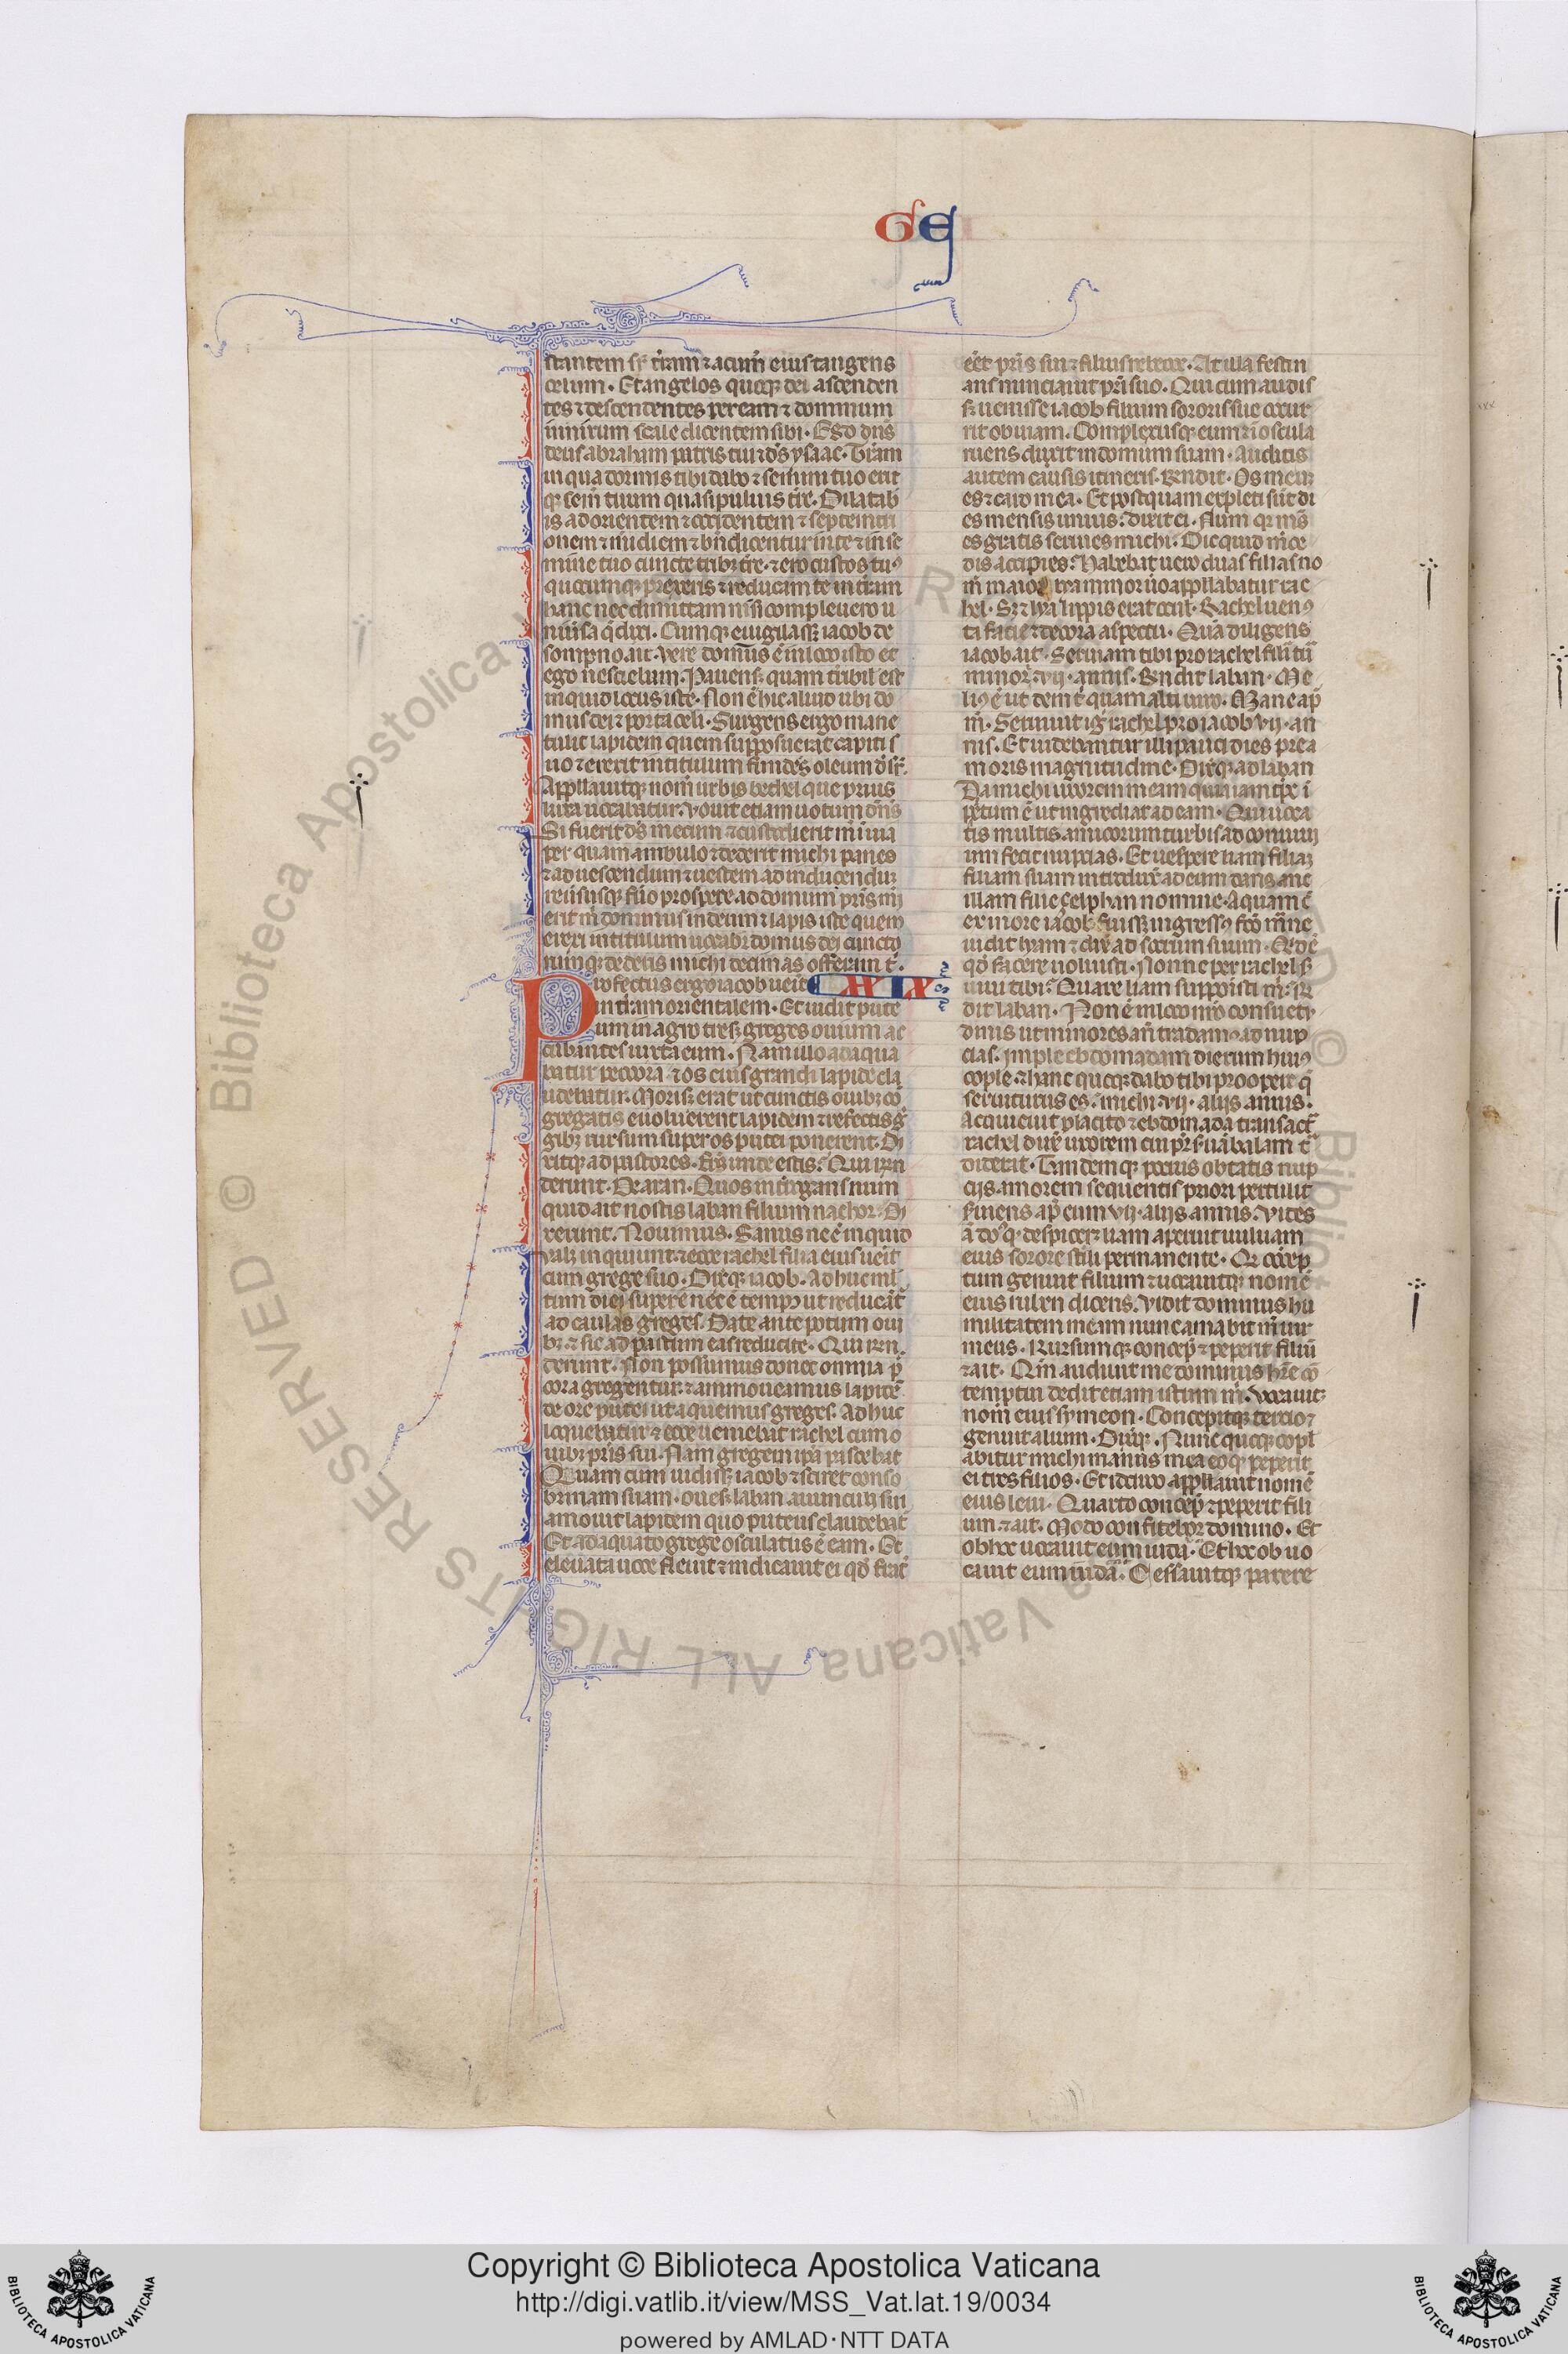 GE
stantem sr̄ t̄ram ⁊ cacum̄ eius tangens
celum. Et angelos quoqꝫ dei ascenden
tes ⁊ descendentes per eam ⁊ dominum
innixum scale dicentem sibi. Ego dn̄s
deus abraham patris tui ⁊ ds̄ ysaac. Terram
in qua dormis tibi dabo ⁊ semini tuo erit
qꝫ sem̄ tuum quasi puluis t̄re. Dilatab
is ad orientem ⁊ occidentem ⁊ septemtri
onem ⁊ meridiem ⁊ bn̄dicentur in te ⁊ in se
mine tuo cuncte tribꝫ t̄re. ⁊ ero custos tuꝰ
quocumqꝫ perrexeris ⁊ reducam te in t̄ram
hanc nec dimittam nisi complevero u
niūsa q̄ dixi. Cumqꝫ euigilassꝫ iacob de
sompno ait. Vere dominus ē in loco isto et
ego nesciebam. Pauensqꝫ quam t̄ribil̄ est
inquid locus iste. Non ē hic aliud nisi do
mus dei ⁊ porta celi. Surgens ergo mane
tulit lapidem quem supposuerat capiti s
uo ⁊ erexit in titulum fundēs oleum desr̄.
Appellauitqꝫ nom̄ urbis bethel que prius
luza uocabatur. Vouit etiam uotum dn̄s
Si fuerit ds̄ mecum ⁊ custodierit m̄ in uia
per quam ambulo ⁊ dederit michi panes
⁊ ad uescendum ⁊ uestem ad induendū
reuersusqꝫ fūo prospere ad domum pr̄is mei
erit m̄ dominus in deum ⁊ lapis iste quem
erexi in titulum uocabitur domus dei cuncto
rumqꝫ dederis michi decimas offeram t̄.
Profectus ergo iacob ueit XXIX
in t̄ram orientalem. Et uidit pute
um in agro tresqꝫ greges ouium ac
cubantes iuxta eum. Nam ex illo adaqua
batur peccora. ⁊ os eius grandi lapide cla
udebatur. Morisqꝫ erat ut cunctis ouibꝫ co
gregatis euoluerent lapidem ⁊ refectis gr̄
gibꝫ rursum super os putei ponerent. Di
xitqꝫ ad pastores. Fr̄s unde estis. Qui rn̄
derunt. De aran. Quos int̄rogans num
quid ait nostis laban filium nachor. Di
xerunt. Nouimus. Sanus ne ē inquid
Valꝫ inquiunt. ⁊ ecce rachel filia eius ueit
cum grege suo. Dixitqꝫ iacob. Adhuc ml̄
tum diei superē nec ē tempꝰ ut reducāt̄
ad caulas greges. Date ante potum oui
bꝫ ⁊ sic ad pastum eas reducite. Qui rn̄
derunt. Non possumus donec omnia pe
cora gregentur ⁊ ammoueamus lapidē
de ore putei ut aquemus greges. Adhuc
loquebatur ⁊ ecce ueniebat rachel cum o
uibꝫ pr̄is sui. Nam gregem ip̄a pascebat
Quam cum uidissꝫ iacob ⁊ sciret conso
brinam suam. ouesqꝫ laban auunculi sui
amouit lapidem quo puteus claudebat̄
Et adaquato grege osculatus ē eam. Et
eleuata uoce fleuit ⁊ indicauit ei qd̄ frat̄
eēt pr̄is sui ⁊ filius rebecce. At illa festin
ans nunciauit pr̄i suo. Qui cum audis
sꝫ uenisse iacob filium sororis sue cucur
rit obuiam. Complexusqꝫ eum ⁊ ī oscula
ruens duxit in domum suam. Auditis
autem causis itineris. Rn̄dit. Os meum
es ⁊ caro mea. Et postquam expleti sūt di
es mensis unius. dixit ei. Num qꝛ fr̄ m̄s
es gratis seruies michi. Dic quid m̄ce
dis accipies. Habebat uero duas filias no
m̄ maioris lia minor ūo appellabatur rac
hel. Sꝫ lya lippis erat ocul. Rachel uenꝰ
ta facie ⁊ decora aspectu. Quā diligens
iacob ait. Seruiam tibi pro rachel filia tua
minore vij. annis. Rn̄dit laban. Me
liꝰ ē ut dem t̄ quam alt̄i uiro. Mane ap̄
m̄. Seruiuit igr̄ rachel pro iacob vij. an
nis. Et uidebantur illi pauci dies prea
moris magnitudine. Dixitqꝫ ad laban
Da michi uxorem meam quia iam tp̄c ī
pletum ē ut ingrediar ad eam. Qui uoca
tis multis amicorum turbis ad conuiuij
um fecit nupcias. Et uespere liam filiam
suam introdux̄ ad eum dans anc
illam filie çelphan nomine. A quam c̄
ex more iacob fuissꝫ ingressꝰ fc̄o mane
uidit lyam ⁊ dix̄ ad socerum suum. Qꝛ dē
qd̄ facere uoluisti. Nonne per rachel s̄
uiui tibi. Quare liam supposuisti m̄. Rn̄
dit laban. Non ē in loco nr̄o consuetu
dinis ut minores an̄ tradamꝰ ad nup
cias. Imple ebdomadam dierum huiꝰ
cople. ⁊ hanc quoqꝫ dabo tibi pro opere q̄
seruiturus es michi. vij. alijs annis.
Acquieuit placito ⁊ ebdomada transacta
rachel dux̄ uxorem cui pr̄ s̄uā balam t̄
diderat. Tandemqꝫ potius obtatis nup
cijs amorem sequentis priori pertulit
s̄uiens ap̄ eum vij. alijs annis. Vides
ā do. qꝫ despiceret liam aperuit uuluam
eius sorore st̄ili permanente. Qꝛ concep
tum genuit filium ⁊ uocauitqꝫ nomē
eius ruben dicens. Vidit dominus hu
militatem meam nunc amabit m̄ uir
meus. Rursumqꝫ concep̄ ⁊ peperit filiū
⁊ ait. Qm̄ audiuit me dominus hr̄e co
temptui dedit etiam istum m̄. Vocauitqꝫ
nom̄ eius symeon. Concepitqꝫ tercio ⁊
genuit alium. Dixitqꝫ. Nunc quoqꝫ copl
abitur michi maritus mea eo qꝫ peperit
ei tres filios. Et idcirco appellauit nomē
eius leui. Quarto concep̄ ⁊ peperit fili
um. ⁊ ait. Modo confitebor domino. Et
ob hoc uocauit eum iuda. Et hoc ob uo
cauit eum iudā. Cessauitqꝫ parere
© Biblioteca Apostolica Vaticana ALL RIGHTS RESERVED
Copyright © Biblioteca Apostolica Vaticana
http://digi.vatlib.it/view/MSS_Vat.lat.19/0034
powered by AMLAD·NTT DATA
BIBLIOTECA APOSTOLICA VATICANA
BIBLIOTECA APOSTOLICA VATICANA